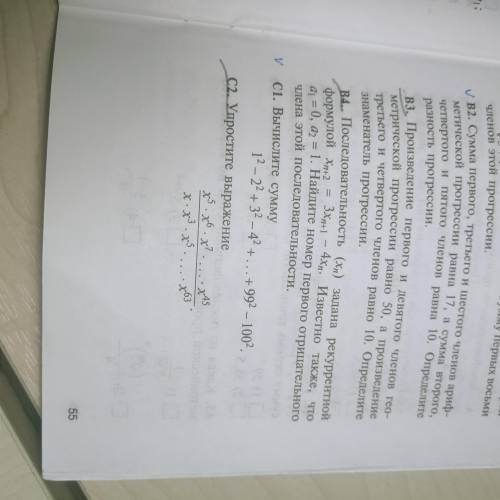 членов этой прогрессии.
первых восьми
В2. Сумма первого, третьего и шестого членов ариф-
метической прогрессии равна 17, а сумма второго,
четвертого и пятого членов равна 10. Определите
разность прогрессии.
В3. Произведение первого и девятого членов гео-
метрической прогрессии равно 50, а произведение
третьего и четвертого членов равно 10. Определите
знаменатель прогрессии.
В4. Последовательность (xₙ) задана рекуррентной
формулой xₙ₊₂ = 3xₙ₊₁ − 4xₙ. Известно также, что
a₁ = 0, a₂ = 1. Найдите номер первого отрицательного
члена этой последовательности.
С1. Вычислите сумму
1² − 2² + 3² − 4² + ... + 99² − 100².
С2. Упростите выражение
x⁵ · x⁶ · x⁷ · ... · x⁴⁵
x · x³ · x⁵ · ... · x⁶³ .
55